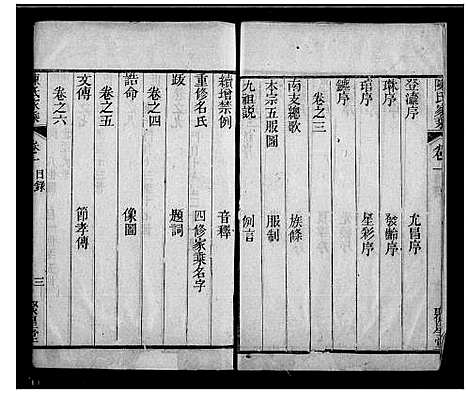 登瀛序 尤昌序
琳序 發齡序
琯序 星彩序
鏈序
卷之三
南支總歌 族條
本宗五服圖 服制
九祖説 例言
續增禁例 音釋
重修名氏 四修家乘名字
跋 題詞
卷之四
誥命 像圖
卷之五
文傳 節孝傳
卷之六
目錄 三